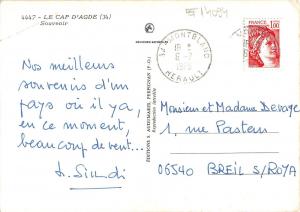 4447 - LE CAP D'AGDE (34)
Souvenir
Nos meilleurs
souvenirs d'un
pays où il y a,
en ce moment,
beaucoup de vent...
34 - MONTBLANC
18 H
6-7
HERAULT
FRANCE
1,00
Monsieur et Madame Devaye
1, rue Pasteur
06540 BREIL S/ROYA